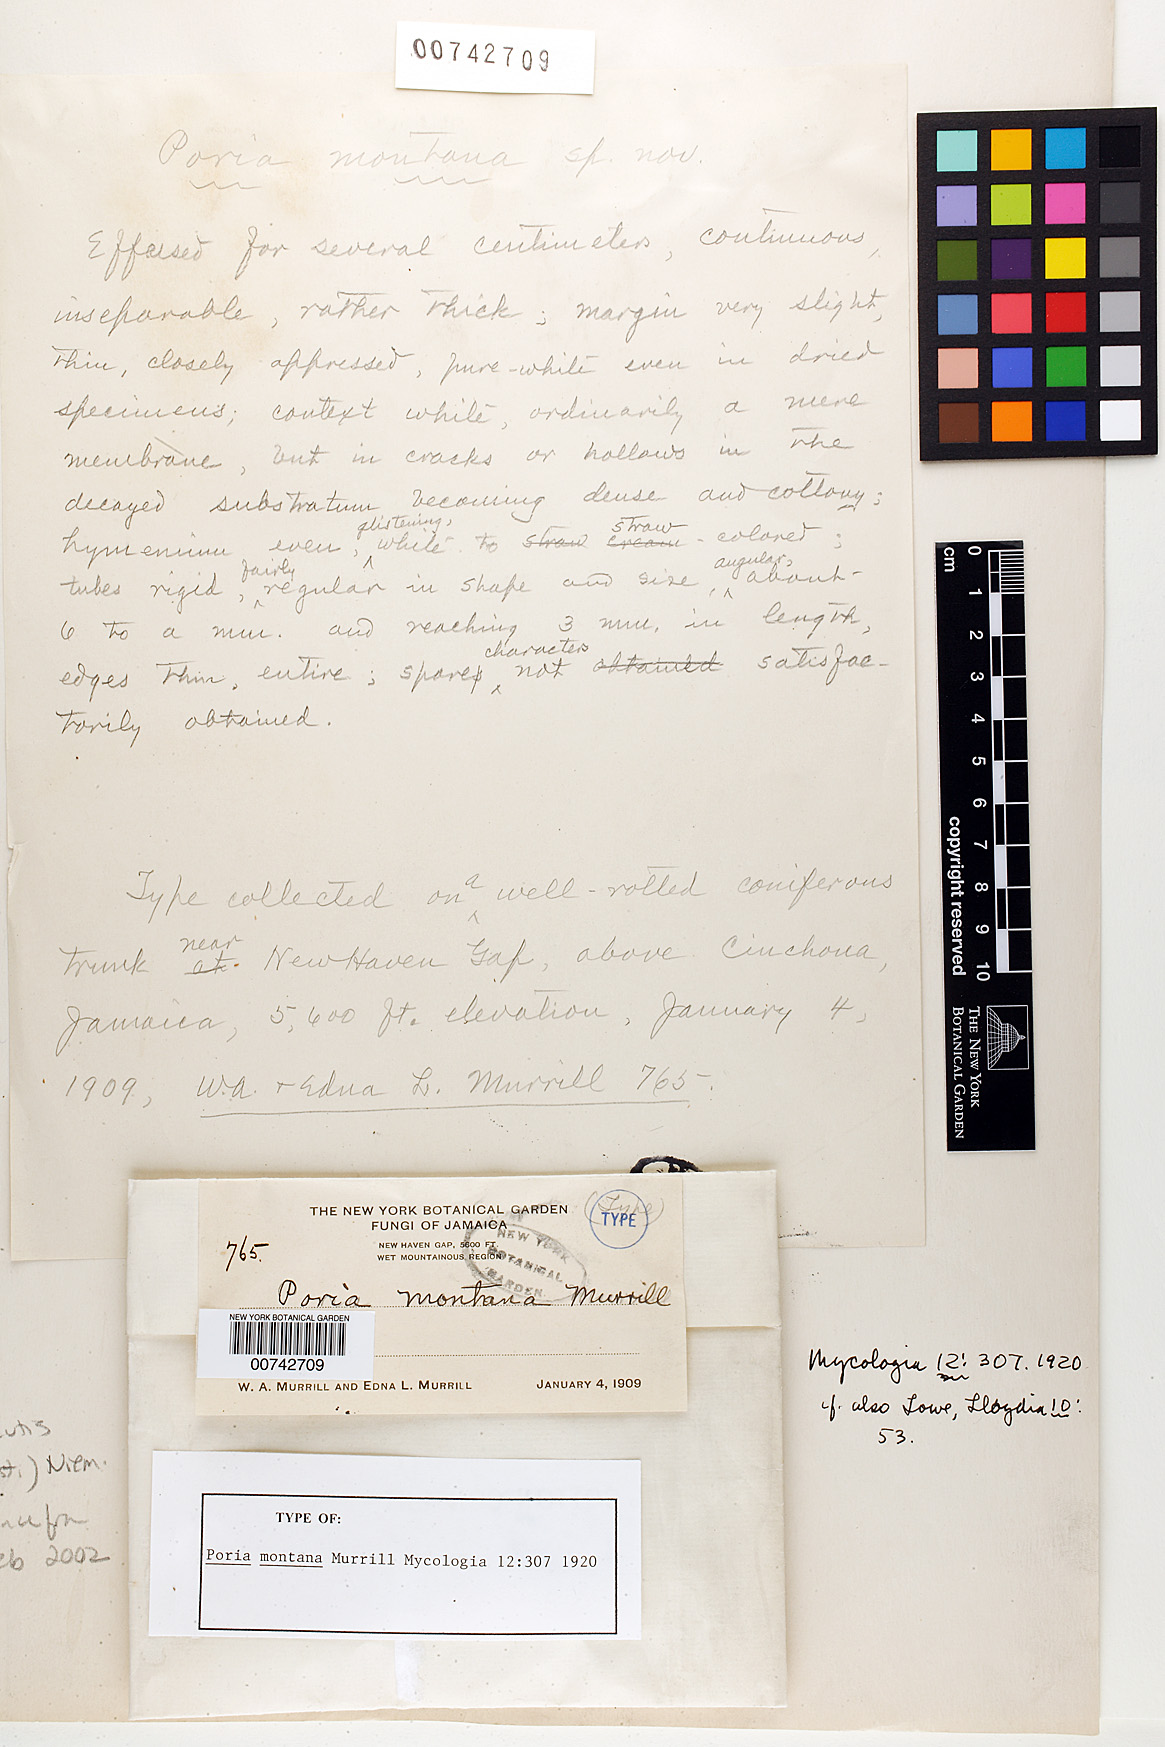 00742709
Poria montana sp. nov.
Effused for several centimeters, continuous,
inseparable, rather thick; margin very slight,
thin, closely appressed, pure-white even in dried
specimens; context white, ordinarily a mere
membrane, but in cracks or hollows in the
decayed substratum becoming dense and cottony;
hymenium even, glistening, white to straw cream straw-colored;
tubes rigid, fairly regular in shape and size, angular, about
6 to a mm. and reaching 3 mm. in length,
edges thin, entire; spores characters not obtained satisfac-
torily obtained.
Type collected on a well-rotted coniferous
trunk at near New Haven Gap, above Cinchona,
Jamaica, 5,600 ft. elevation, January 4,
1909, W.A. + Edna L. Murrill 765.
THE NEW YORK BOTANICAL GARDEN
FUNGI OF JAMAICA
NEW HAVEN GAP, 5600 FT.
WET MOUNTAINOUS REGION
(Type)
TYPE
NEW YORK
BOTANICAL
GARDEN
765.
Poria montana Murrill
NEW YORK BOTANICAL GARDEN
00742709
W. A. MURRILL AND EDNA L. MURRILL JANUARY 4, 1909
Mycologia 12: 307. 1920
cf. also Lowe, Lloydia 10:
53.
Niem.
2002
TYPE OF:
Poria montana Murrill Mycologia 12:307 1920
0 1 2 3 4 5 6 7 8 9 10
cm
copyright reserved
THE NEW YORK
BOTANICAL GARDEN